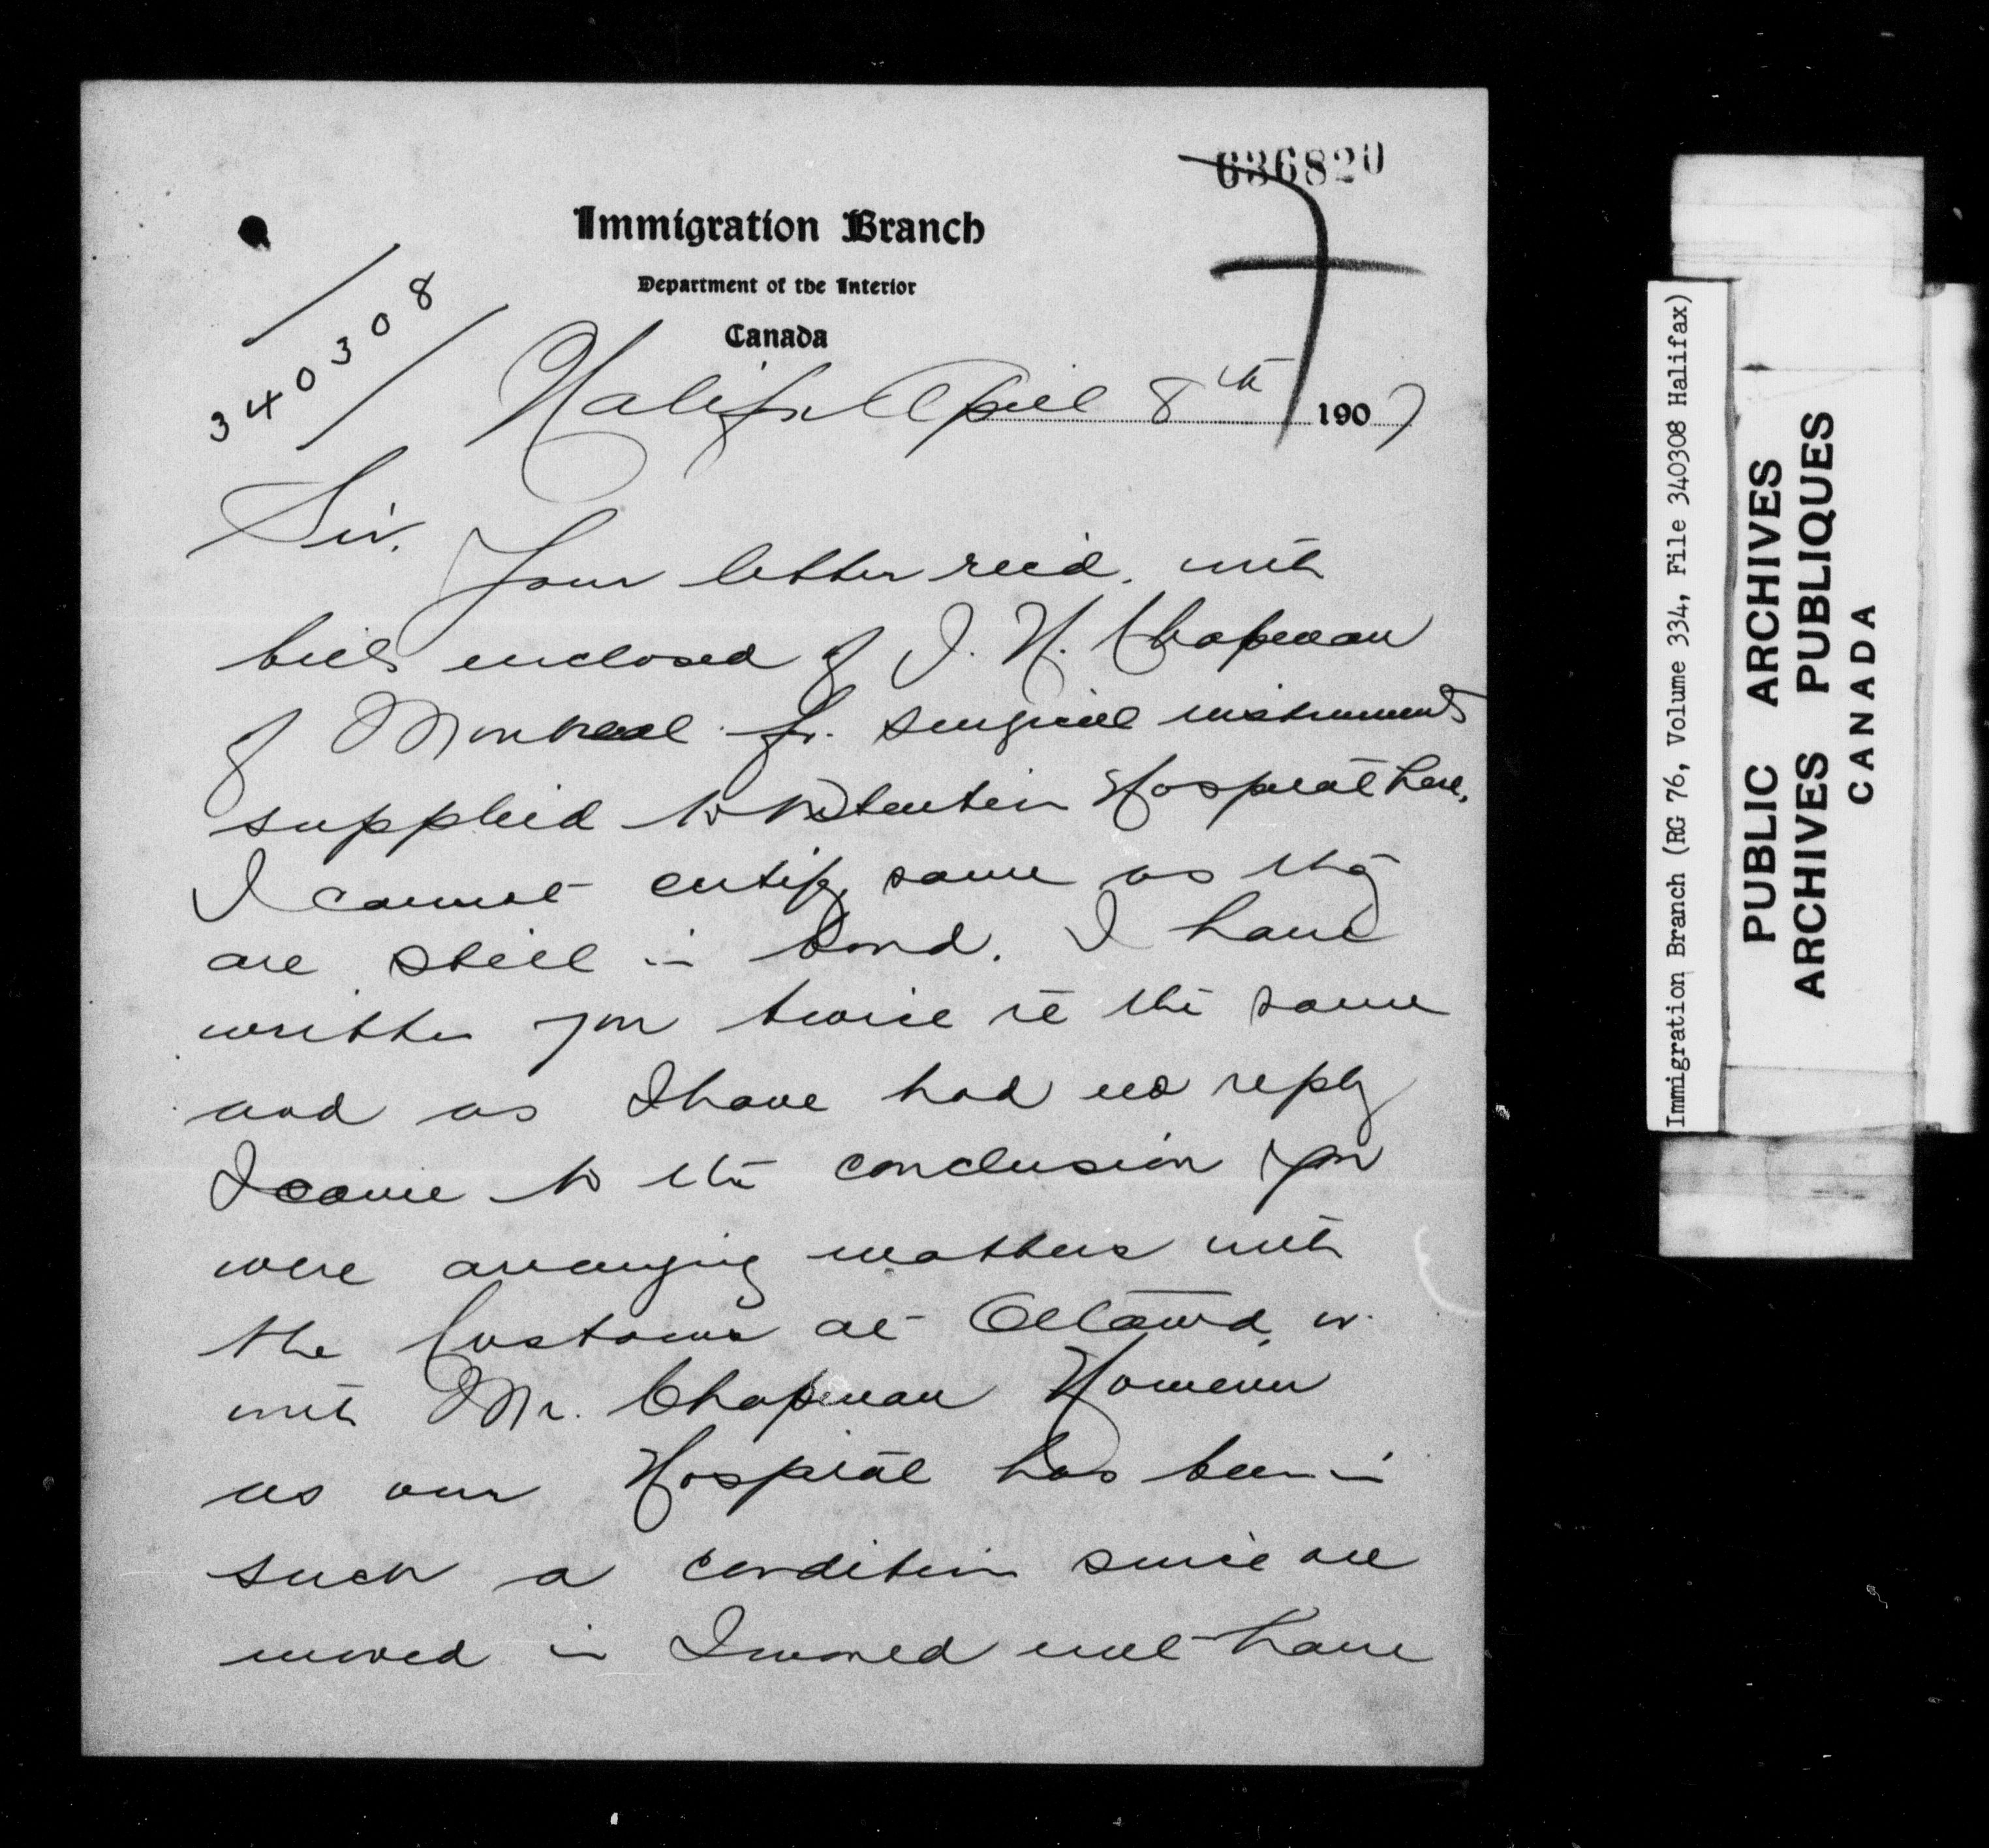 636820
Immigration Branch
Department of the Interior
Canada
340308
Halifax April 8th 1907
Sir.
Your letter recd. with
bills enclosed of J. H. Chapman
of Montreal for surgical instruments
supplied to Detention Hospital here.
I cannot certify same as they
are still in bond. I have
written you twice re the same
and as I have had no reply
I came to the conclusion you
were arranging matters with
the Customs at Ottawa, or
with Mr. Chapman However
as our Hospital has been in
such a condition since we
moved in I would not have
Immigration Branch (RG 76, Volume 334, File 340308 Halifax)
PUBLIC ARCHIVES
ARCHIVES PUBLIQUES
CANADA